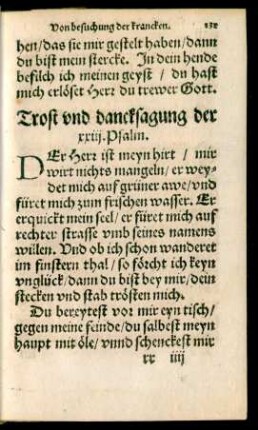 Von besuchung der krancken. 132
hen/das sie mir gestelt haben/dann
du bist mein stercke. In dein hende
befilch ich meinen geyst / du hast
mich erlöset Herr du trewer Gott.
Trost vnd dancksagung der
xxiij. Psalm.
DEr Herr ist meyn hirt / mir
wirt nichts mangeln/ er wey-
det mich auf grüner awe/vnd
füret mich zum frischen wasser. Er
erquickt mein seel/ er füret mich auf
rechter strasse vmb seines namens
willen. Vnd ob ich schon wanderet
im finstern thal / so förcht ich keyn
vnglück/dann du bist bey mir/dein
stecken vnd stab trösten mich.
Du bereytest vor mir eyn tisch/
gegen meine feinde/du salbest meyn
haupt mit öle/ vnnd schenckest mir
rr iiij